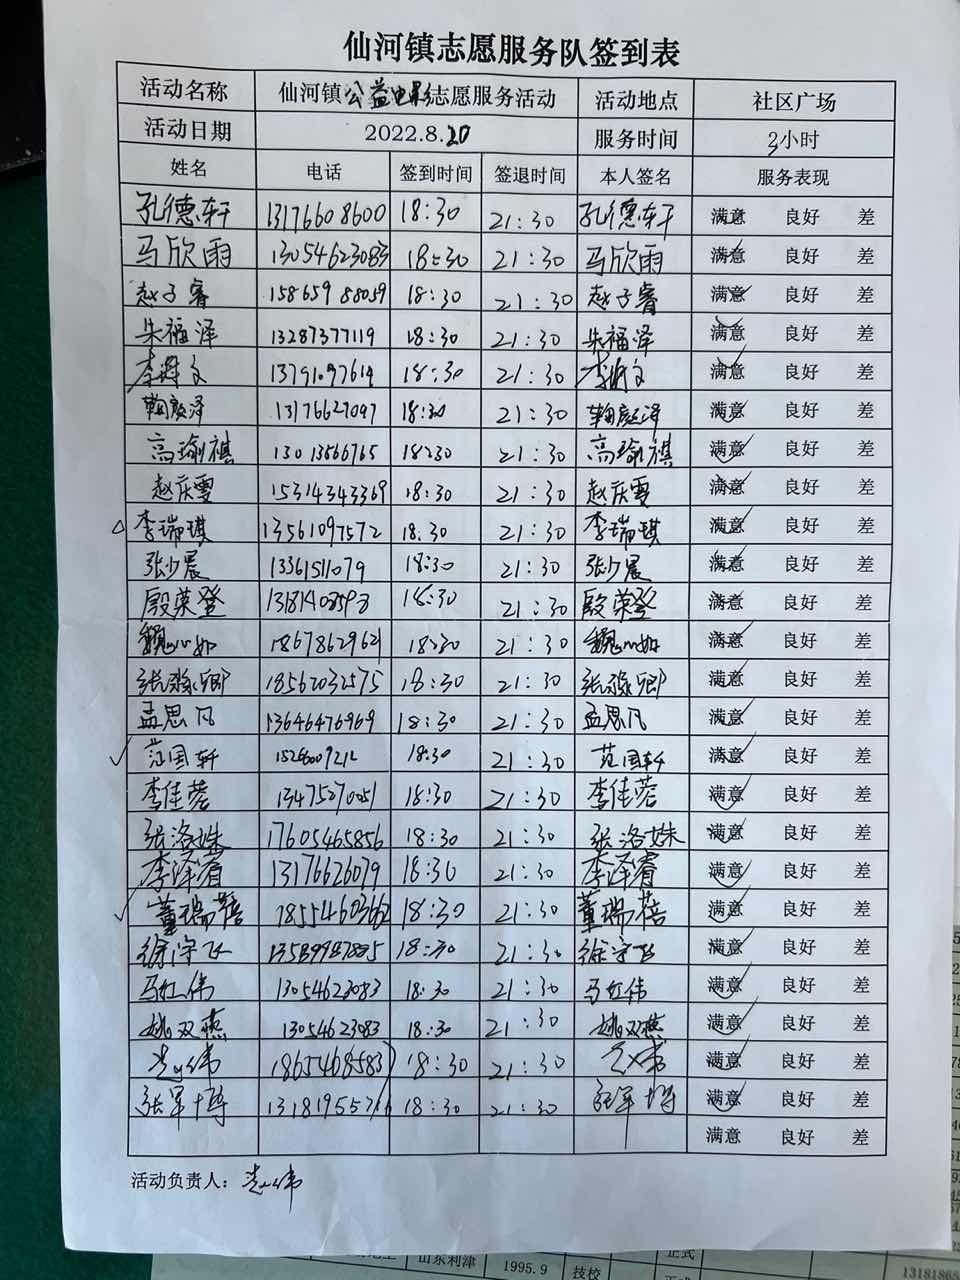 仙河镇志愿服务队签到表
活动名称 仙河镇公益电影志愿服务活动 活动地点 社区广场
活动日期 2022.8.20 服务时间 3小时
姓名 电话 签到时间 签退时间 本人签名 服务表现
孔德轩 13176608600 18:30 21:30 孔德轩 满意 良好 差
马欣雨 13054623083 18:30 21:30 马欣雨 满意 良好 差
赵子睿 15865988059 18:30 21:30 赵子睿 满意 良好 差
朱福泽 13287377119 18:30 21:30 朱福泽 满意 良好 差
李 文 13791097619 18:30 21:30 李 文 满意 良好 差
鞠 泽 13176627097 18:30 21:30 鞠 泽 满意 良好 差
高瑜祺 13013566765 18:30 21:30 高瑜祺 满意 良好 差
赵庆雯 15314343369 18:30 21:30 赵庆雯 满意 良好 差
李瑞琪 13561097572 18:30 21:30 李瑞琪 满意 良好 差
张少晨 13361511079 18:30 21:30 张少晨 满意 良好 差
殷荣登 13181408593 18:30 21:30 殷荣登 满意 良好 差
魏心如 18678629621 18:30 21:30 魏心如 满意 良好 差
张 卿 18562032575 18:30 21:30 张 卿 满意 良好 差
孟思凡 13646476969 18:30 21:30 孟思凡 满意 良好 差
范国轩 18:30 21:30 范国轩 满意 良好 差
李佳蓉 13475270051 18:30 21:30 李佳蓉 满意 良好 差
张洛姝 17605465856 18:30 21:30 张洛姝 满意 良好 差
李泽睿 13176626079 18:30 21:30 李泽睿 满意 良好 差
董瑞蓓 18:30 21:30 董瑞蓓 满意 良好 差
徐守飞 13589987885 18:30 21:30 徐守飞 满意 良好 差
马红伟 13054623083 18:30 21:30 马红伟 满意 良好 差
姚双燕 13054623083 18:30 21:30 姚双燕 满意 良好 差
18:30 21:30 满意 良好 差
张军博 18:30 21:30 张军博 满意 良好 差
满意 良好 差
活动负责人：
山东利津 1995.9 技校 正式